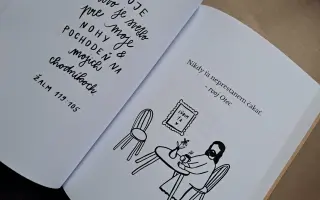 OJE
slovo je svetlo
pre moje
NOHY &
POCHODEŇ NA
mojich
chodníkoch
ŽALM 119:105
Nikdy ťa neprestanem čakať.
- tvoj Otec